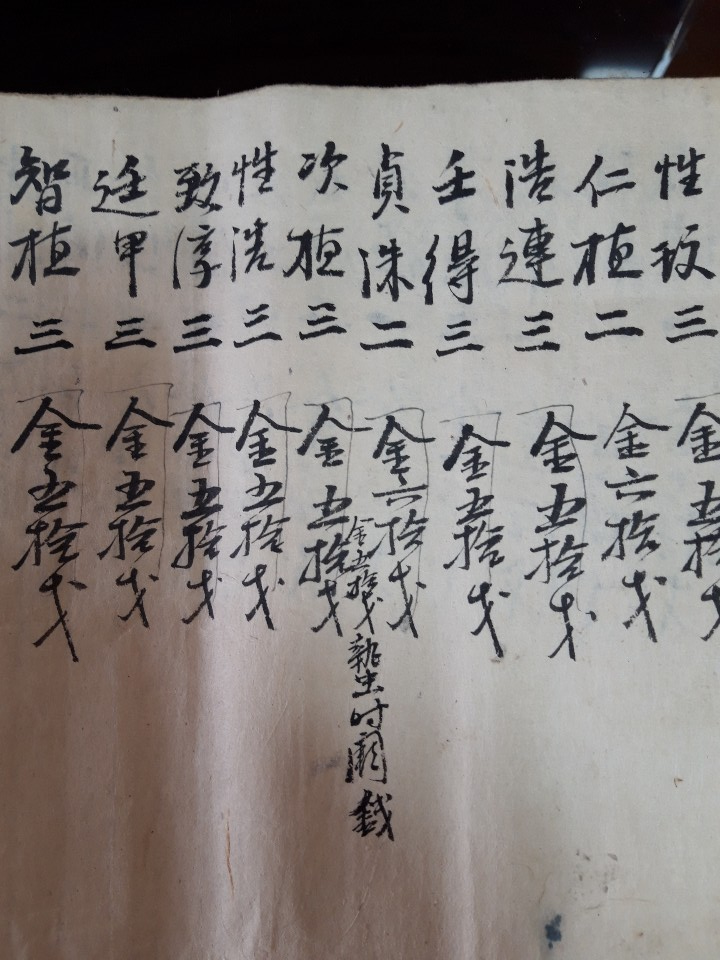 性玟 三 金五拾戈
仁植 二 金六拾戈
浩連 三 金五拾戈
壬得 三 金五拾戈
貞洙 二 金六拾戈
金五拾戈 時
次植 三 金五拾戈
性浩 三 金五拾戈
致淳 三 金五拾戈
廷甲 三 金五拾戈
智植 三 金五拾戈